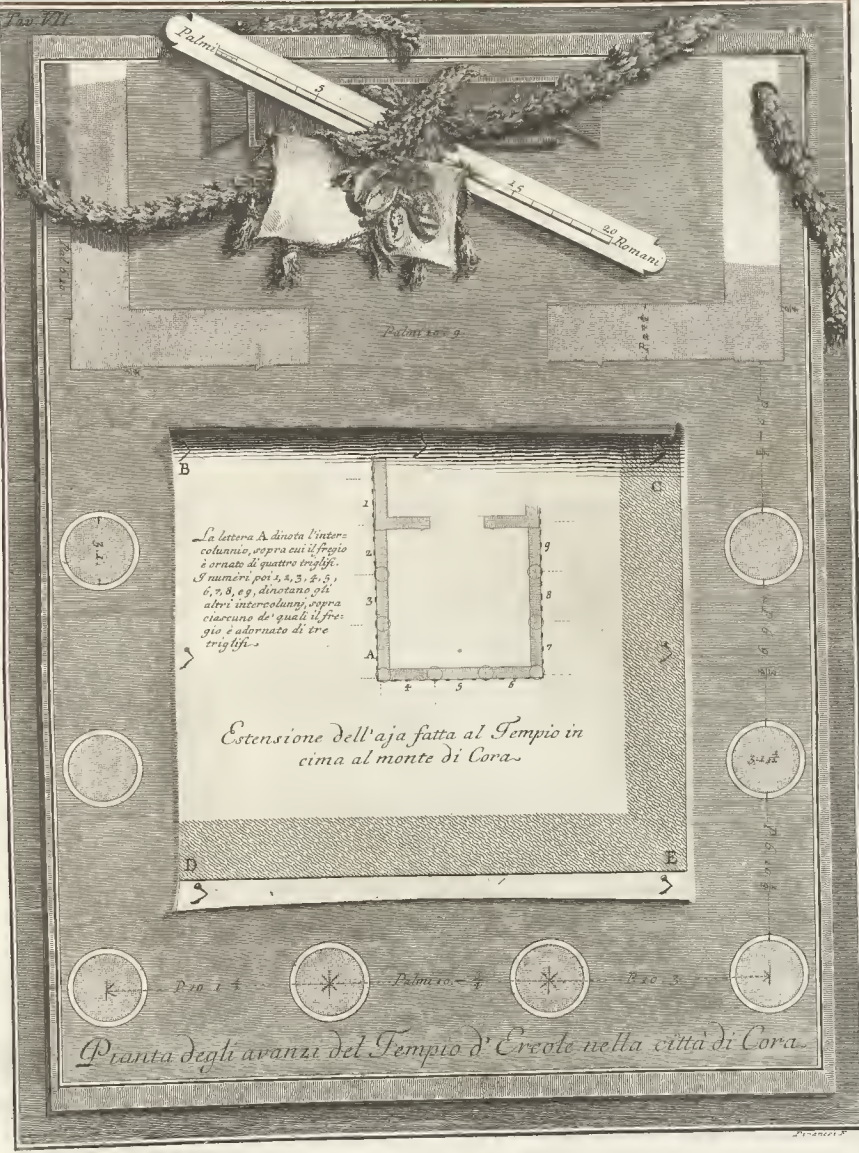 Tav. VII.
Palmi
5
15
20
Romani
Palmi 10 - 9
B
C
La lettera A dinota l'inter=
colunnio, sopra cui il fregio
è ornato di quattro triglifi.
I numeri poi 1, 2, 3, 4, 5,
6, 7, 8, e 9, dinotano gli
altri intercolunnj, sopra
ciascuno de' quali il fre=
gio è adornato di tre
triglifi.
1
2
3
A
4
5
6
7
8
9
Estensione dell'aja fatta al Tempio in
cima al monte di Cora
D
E
3. 1.
P. 10. 1 1/4
P. 10. 3
Pianta degli avanzi del Tempio d' Ercole nella città di Cora
Piranesi F.